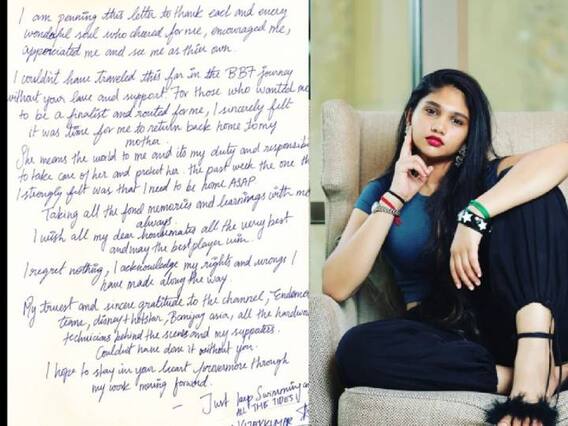 I am penning this letter to thank each and every
wonderful soul who cheered for me, encouraged me,
appreciated me and see me as their own.
I couldn't have traveled this far in the BB7 journey
without your love and support. For those who wanted me
to be a finalist and rooted for me, I sincerely felt
it was time for me to return back home to my
mother.
She means the world to me and its my duty and responsibi
to take care of her and protect her. the past week the one th
I strongly felt was that I need to be home ASAP.
Taking all the fond memories and learnings with me
always.
I wish all my dear housemates all the very best
and may the best player win.
I regret nothing, I acknowledge my rights and wrongs I
have made along the way.
My truest and sincere gratitude to the channel, Endemol
team, disney+ hotstar, Banijay asia, all the hardwo
technicians behind the scenes and my supporters.
Couldn't have done it without you.
I hope to stay in your heart forevermore through
my work moving forward.
– Just keep Swimming
ALL THE TIDES
VIJAYKUMAR